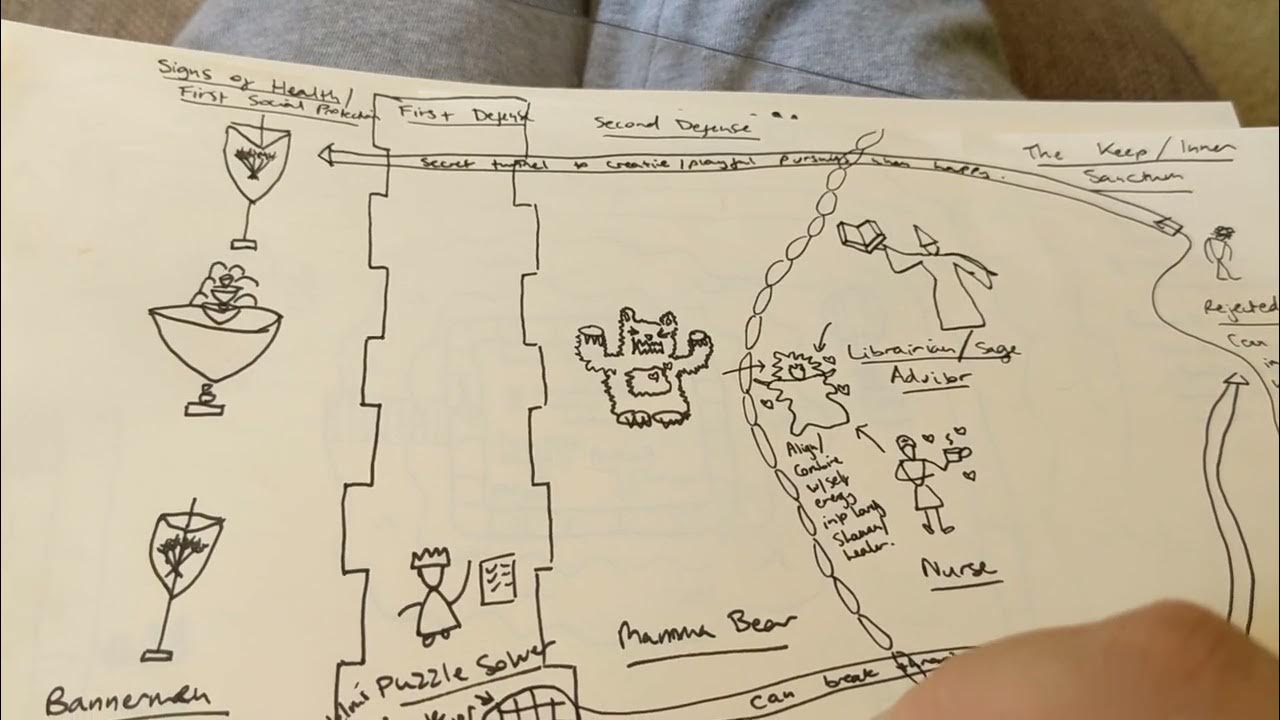 Signs of Health/
First Social Protection
First Defense
Second Defense
The Keep/Inner
Sanctum
Secret tunnel to creative/playful pursuits when happy.
Rejected
Can
in
Librairian/Sage
Advibr
Align/
Combine
w/self
energy
Shaman/
healer.
Nurse
Mamma Bear
Puzzle Solver
Bannerman
can break